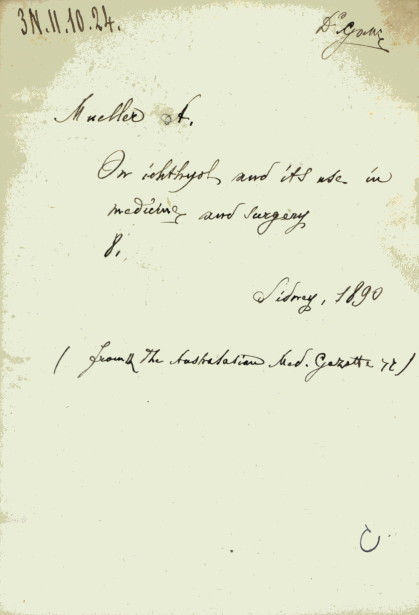 3N.11.10.24.
Dr
Mueller A.
On ichthyol and its use in
medicine and surgery
8.
Sidney, 1890
( from the Australasian Med. Gazette )
C